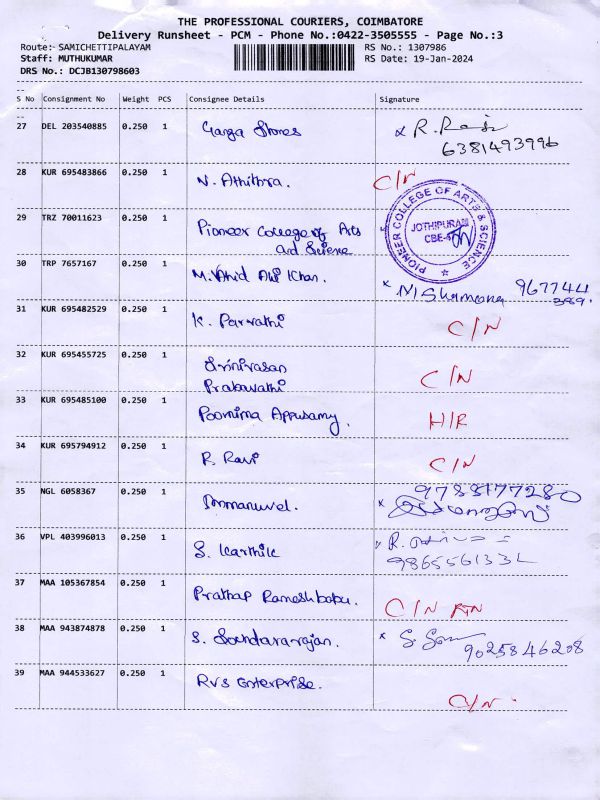 THE PROFESSIONAL COURIERS, COIMBATORE
Delivery Runsheet - PCM - Phone No.:0422-3505555 - Page No.:3
Route: SAMICHETTIPALAYAM RS No.: 1307986
Staff: MUTHUKUMAR RS Date: 19-Jan-2024
DRS No.: DCJB130798603
S No Consignment No Weight PCS Consignee Details Signature
27 DEL 203540885 0.250 1 Ganga Stores x R.
6381493996
28 KUR 695483866 0.250 1 N. Athithra. C/N
29 TRZ 70011623 0.250 1 Pioneer College of Arts
and Science
PIONEER COLLEGE OF ARTS & SCIENCE
JOTHIPURAM
30 TRP 7657167 0.250 1 Khan. x 967744
389.
31 KUR 695482529 0.250 1 K. Parvathi C/N
32 KUR 695455725 0.250 1 Srinivasan
Prabavathi C/N
33 KUR 695485100 0.250 1 Poornima Appusamy. H/R
34 KUR 695794912 0.250 1 R. Ravi C/N
35 NGL 6058367 0.250 1 Immanuvel. 9788177280
x
36 VPL 403996013 0.250 1 S. Karthik R.
37 MAA 105367854 0.250 1 Prathap Rameshbabu. C/N RTN
38 MAA 943874878 0.250 1 S. Soundararajan. x
9025846208
39 MAA 944533627 0.250 1 RVS Enterprise. C/N